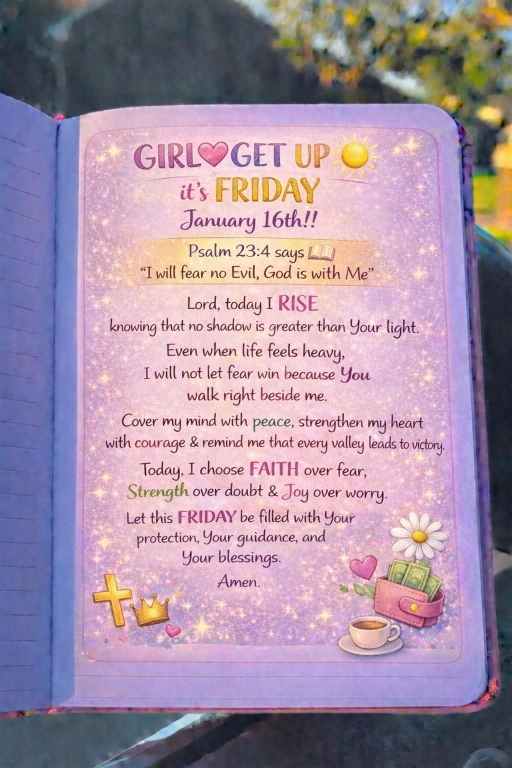 GIRL GET UP
it's FRIDAY
January 16th!!
Psalm 23:4 says
"I will fear no Evil, God is with Me"
Lord, today I RISE
knowing that no shadow is greater than Your light.
Even when life feels heavy,
I will not let fear win because You
walk right beside me.
Cover my mind with peace, strengthen my heart
with courage & remind me that every valley leads to victory.
Today, I choose FAITH over fear,
Strength over doubt & Joy over worry.
Let this FRIDAY be filled with Your
protection, Your guidance, and
Your blessings.
Amen.